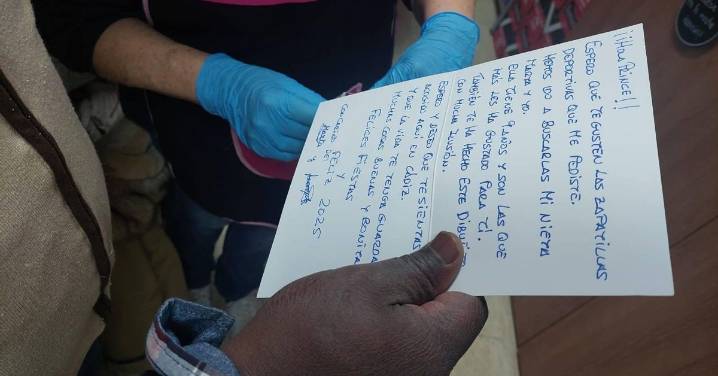 ¡¡Hola Prince!!
Espero que te gusten las zapatillas
deportivas que me pediste.
Hemos ido a buscarlas mi nieta
Marta y yo.
Ella tiene 9 años y son las que
más les ha gustado para ti.
También te ha hecho este dibujito
con mucha ilusión.
Espero y deseo que te sientas
acogido aquí en Cádiz.
Y que la vida te tenga guardada
muchas cosas buenas y bonitas
Felices Fiestas
y
Felíz 2025